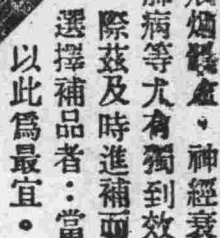 烟，神經衰
病等尤有獨到效
際茲及時進補而
選擇補品者：當
以此爲最宜。